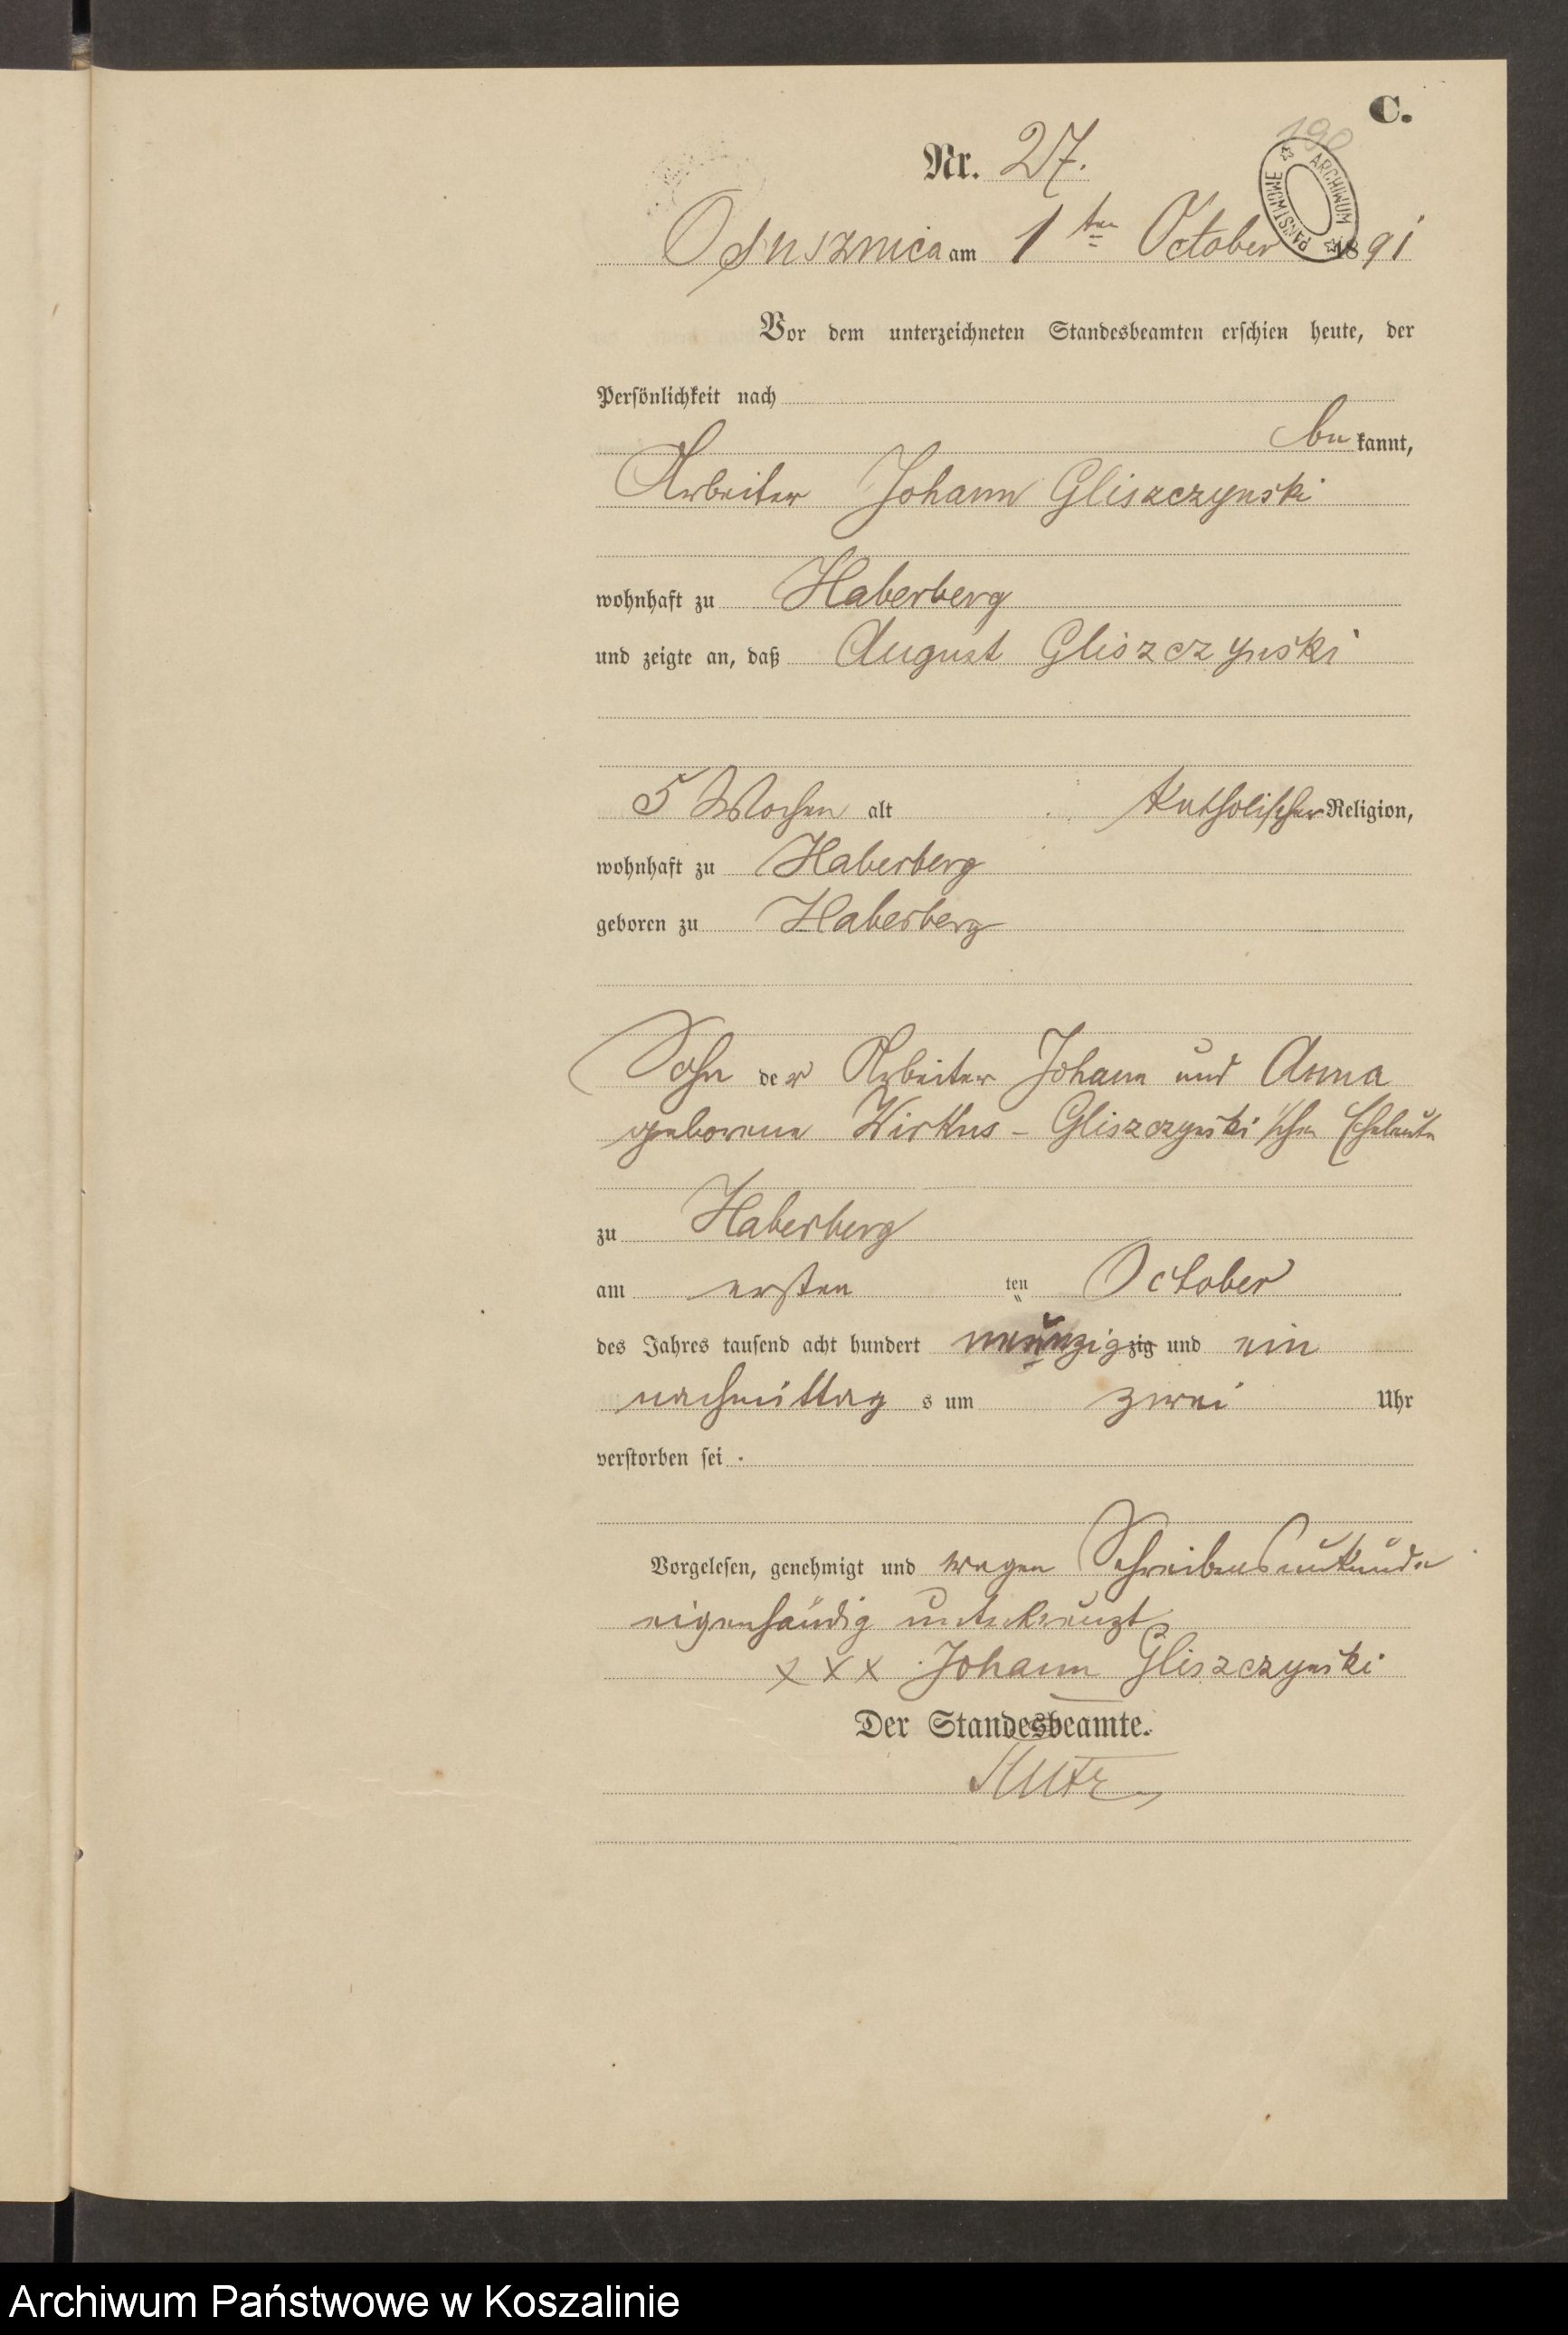 C.
190
Nr. 27.
ARCHIWUM PAŃSTWOWE
Osusznica am 1ten October 1891
Vor dem unterzeichneten Standesbeamten erschien heute, der
Persönlichkeit nach
be kannt,
Arbeiter Johann Gliszczynski
wohnhaft zu Haberberg
und zeigte an, daß August Gliszczynski
5 Wochen alt katholischer Religion,
wohnhaft zu Haberberg
geboren zu Haberberg
Sohn der Arbeiter Johann und Anna
geborene Wirkus - Gliszczynski'schen Eheleute
zu Haberberg
am ersten ten October
des Jahres tausend acht hundert neunzig zig und ein
nachmittag s um zwei Uhr
verstorben sei.
Vorgelesen, genehmigt und wegen Schreibensunkunde
eigenhändig unterkreuzt
xxx Johann Gliszczynski
Der Standesbeamte.
Archiwum Państwowe w Koszalinie